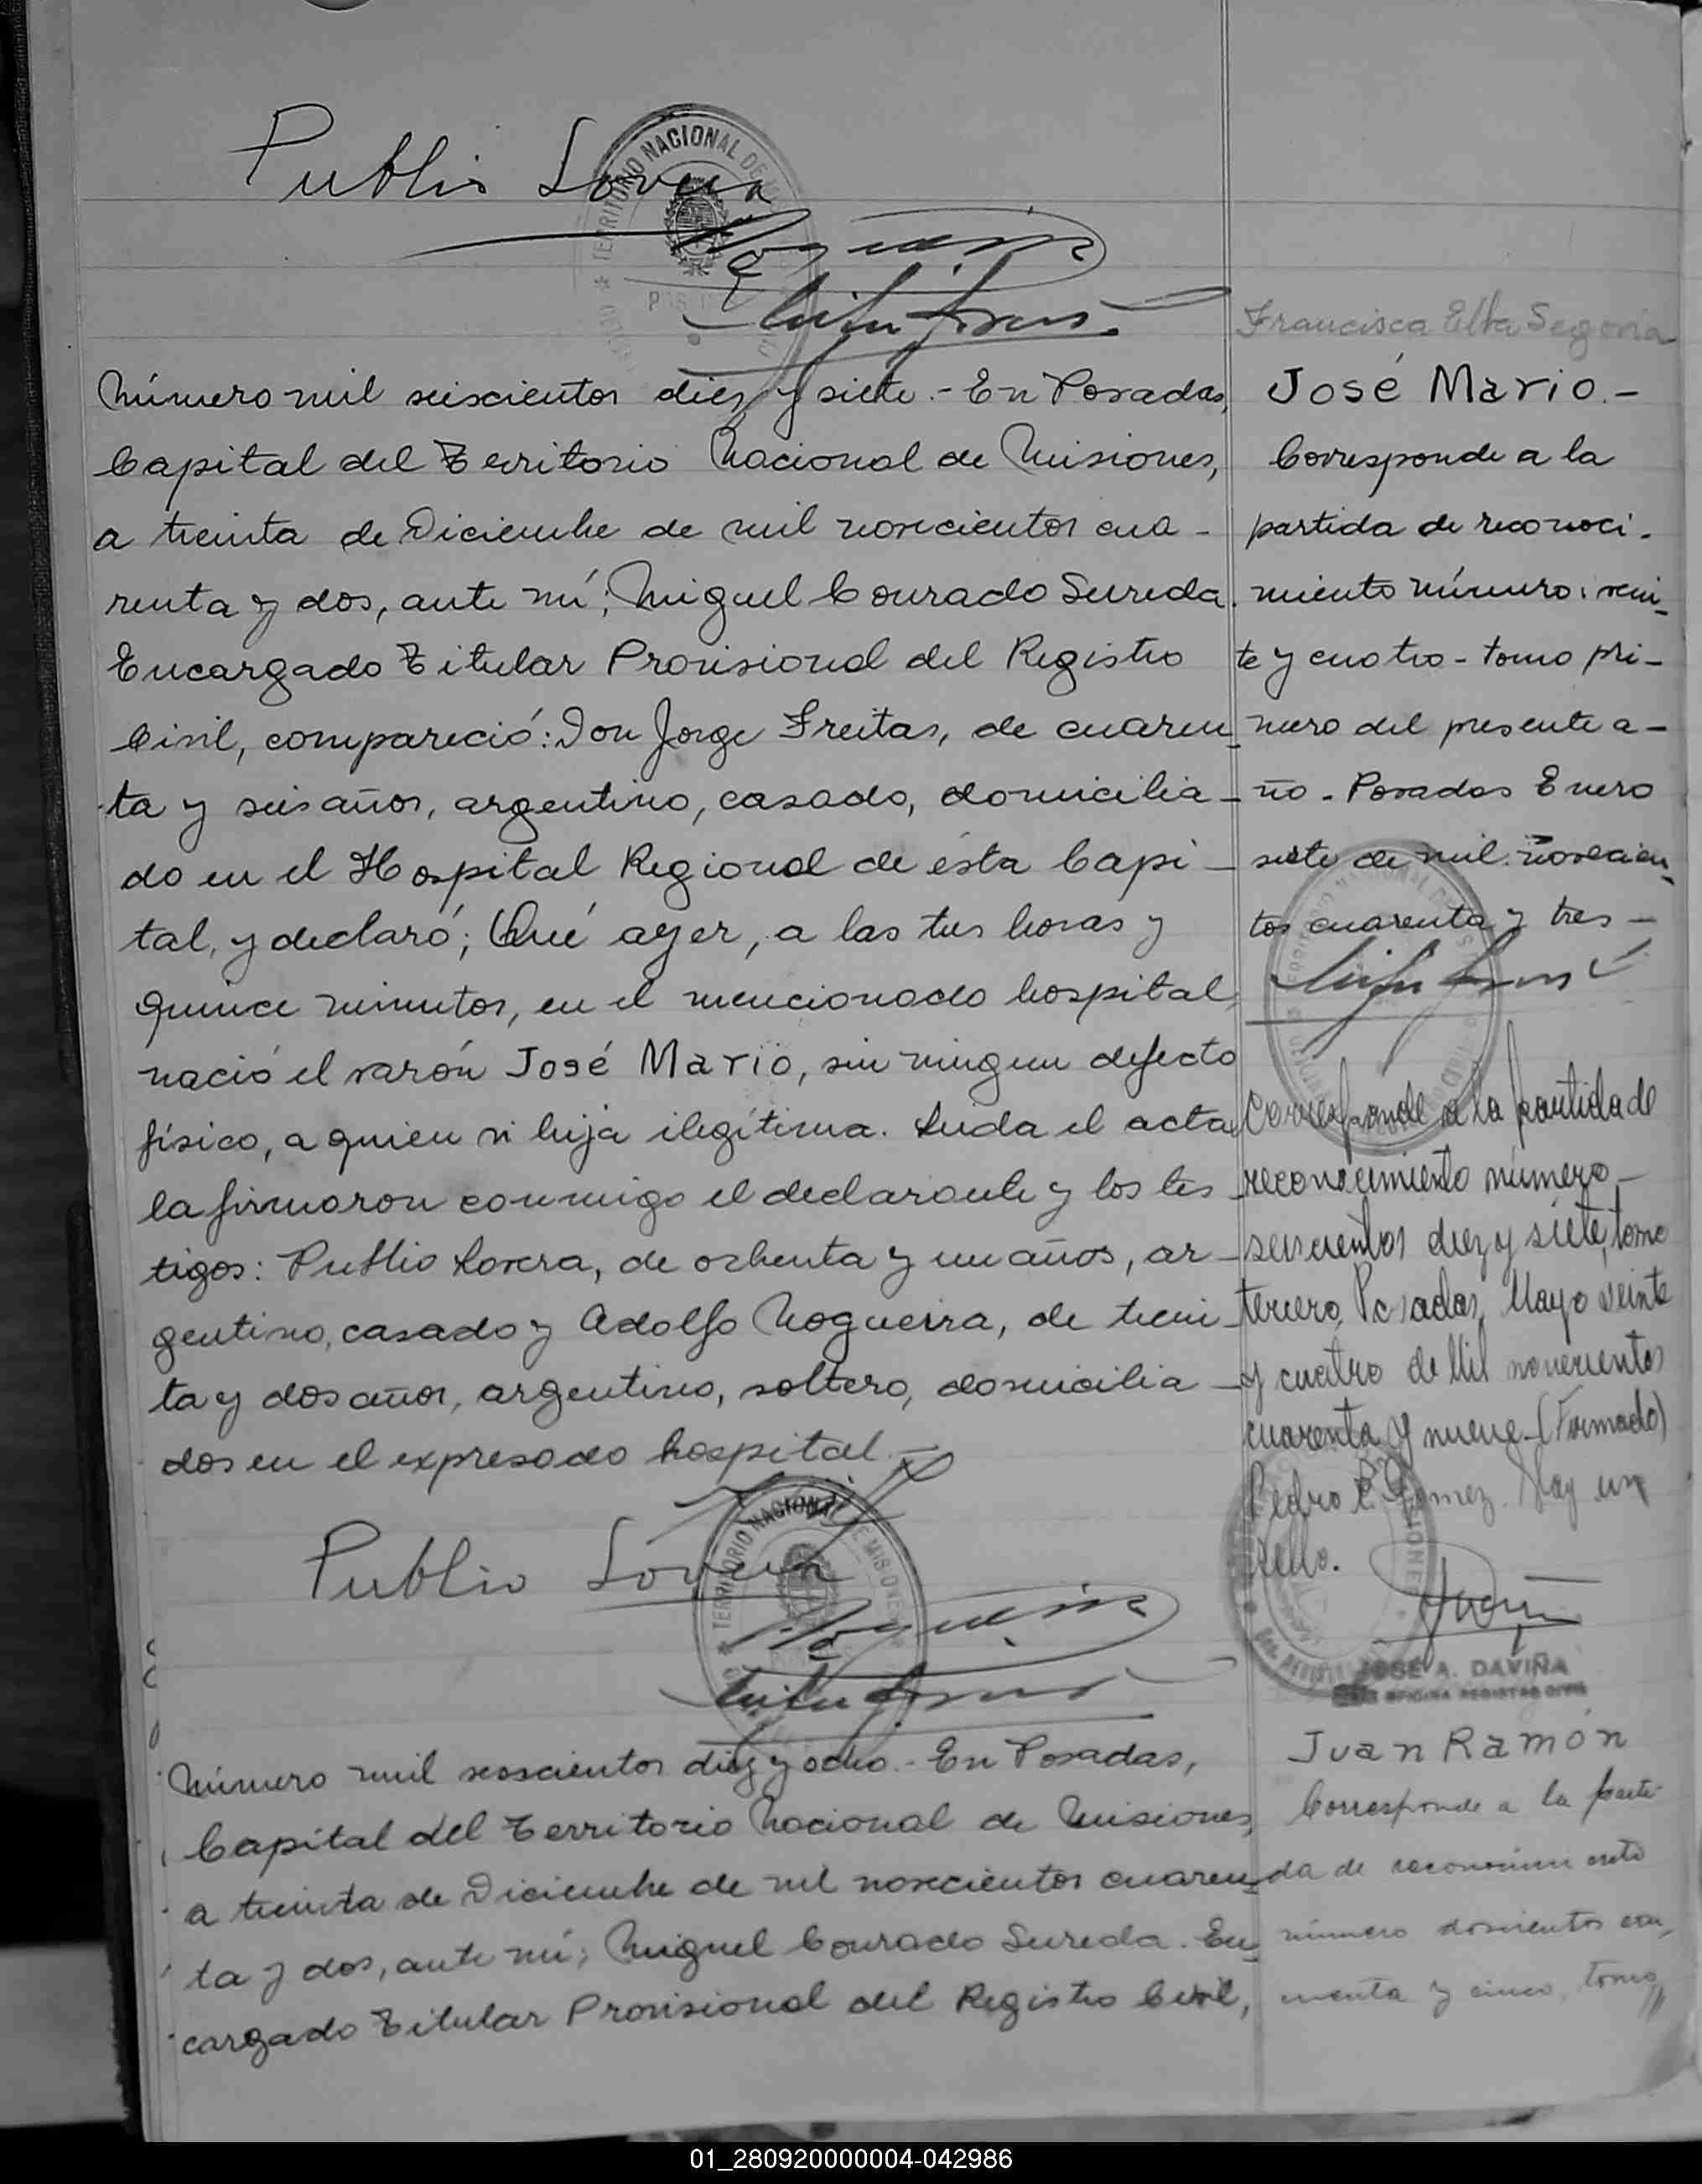 Publio Lovera
TERRITORIO NACIONAL DE
Francisca Elba Segovia
Número mil seiscientos diez y siete.- En Posadas,
Capital del Territorio Nacional de Misiones,
a treinta de Diciembre de mil novecientos cua-
renta y dos, ante mí; Miguel Conrado Sureda.
Encargado Titular Provisional del Registro
Civil, compareció: Don Jorge Freitas, de cuaren-
ta y seis años, argentino, casado, domicilia-
do en el Hospital Regional de ésta Capi-
tal, y declaró; Qué ayer, a las tres horas y
quince minutos, en el mencionado hospital,
nació el varón José Mario, sin ningun defecto
físico, a quien vi hija ilegítima. Leida el acta
la firmaron conmigo el declarante y los tes-
tigos: Publio Lovera, de ochenta y un años, ar-
gentino, casado y Adolfo Nogueira, de trein-
ta y dos años, argentino, soltero, domicilia-
dos en el expresado hospital.-
José Mario.-
Corresponde a la
partida de reconoci-
miento número: vein-
te y cuatro - tomo pri-
mero del presente a-
ño. Posadas Enero
siete de mil novecien-
tos cuarenta y tres -
Corresponde a la partida de
reconocimiento número
seiscientos diez y siete, tomo
tercero, Posadas, Mayo veinte
y cuatro de Mil novecientos
cuarenta y nueve - (Formado)
Pedro R. Gomez. Hay un
sello.
JOSÉ A. DAVIÑA
OFICINA REGISTRO CIVIL
Publio Lovera
TERRITORIO NACIONAL DE MISIONES
Número mil seiscientos diez y ocho.- En Posadas,
Capital del Territorio Nacional de Misiones,
a treinta de Diciembre de mil novecientos cuaren-
ta y dos, ante mí; Miguel Conrado Sureda. En-
cargado Titular Provisional del Registro Civil,
Juan Ramón
Corresponde a la parti-
da de reconocimiento
número doscientos
y cinco, tomo
01_280920000004-042986